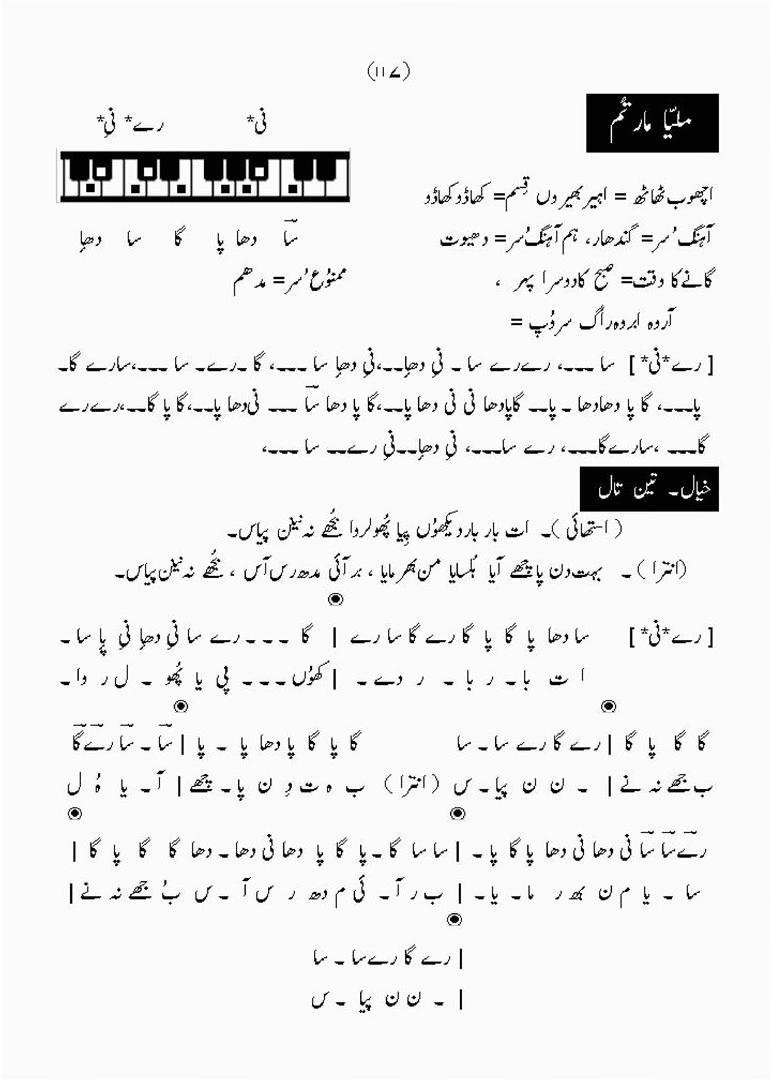 (۱۱۷)
ملیّا مارتُم
نی* رے* نیِ*
اچھوب ٹھاٹھ = اہیر بھیروں قِسم= کھاڈو کھاڈو
آہنگ سُر= گندھار، ہم آہنگ سُر= دھیوت
سا دھا پا گا سا دھاِ
گانے کا وقت= صبح کا دوسرا پہر ،
ممنوُع سُر= مدھم
آروہ ابروہ راگ سروُپ =
[رے*نی*] سا ۔۔۔، رےرے سا ۔ نیِ دھاِ۔۔،نیِ دھاِ سا ۔۔۔، گا ۔رے۔ سا ۔۔۔،سارے گا۔
پا۔۔۔، گا پا دھادھا ۔ پا۔۔ گاپادھا نی نی دھا پا۔۔،گا پا دھا سا ۔۔۔ نی دھا پا۔۔،گا پا گا۔۔،رےرے
گا۔۔۔ ،سارےگا۔۔۔، رے سا۔۔۔، نیِ دھاِ۔۔نیِ رے۔۔ سا ۔۔۔،
خیال۔ تین تال
(استھائی)۔ ات بار بار دیکھوُں پِیا پُھولروا بُجھے نہ نینن پیاس۔
(انترا) ۔ بہت دن پاچھے آیا ہُلسایا من بھرمایا ، بر آئی مدھ رس آس ، بُجھے نہ نینن پیاس۔
[رے*نی*] سا دھا پا گا پا گا رے گا سا رے | گا ۔۔۔ رے سا نیِ دھاِ نیِ پاِ سا ۔
ا ت با۔ ر با ۔ ر دے ۔ | کھوُں ۔۔۔ پی یا پُھو ۔ ل ر وا ۔
گا گا پا گا | رے گا رے سا ۔ سا گا پا گا پا دھا پا ۔ پا | سا ۔ سا رے گا
ب جھے نہ نے | ۔ ن ن پیا ۔ س (انترا) ب ہ ت دِ ن پا ۔ چھے | آ ۔ یا ہُ ل
رے سا سا نی دھا نی دھا پا گا پا ۔ | سا سا گا ۔ پا گا پا دھا نی دھا ۔ دھا گا گا پا گا |
سا ۔ یا م ن بھ ر ما ۔ یا ۔ | ب ر آ ۔ ئی م دھ ر س آ ۔ س بُ جھے نہ نے |
| رے گا رے سا ۔ سا
| ۔ ن ن پیا ۔ س